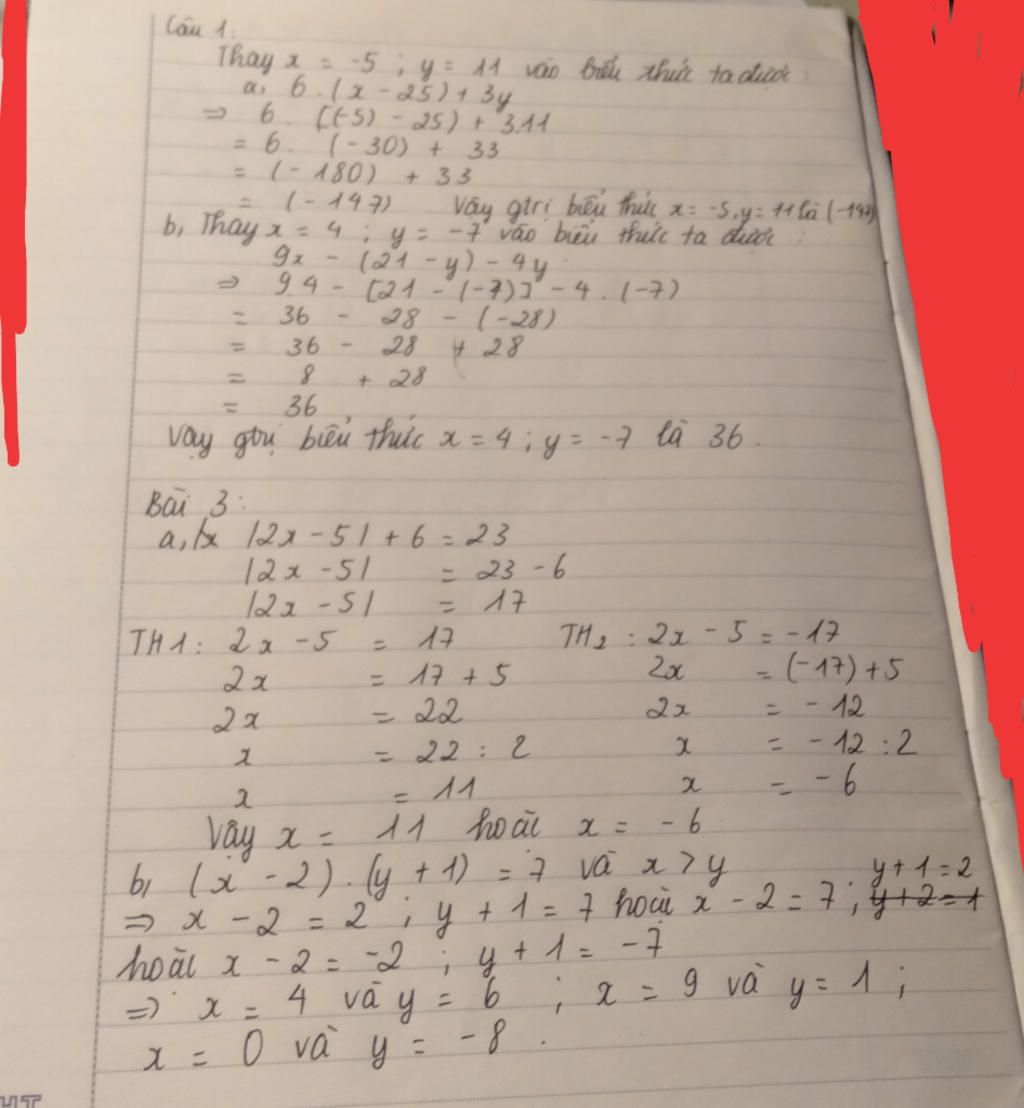 Câu 1:
Thay x = -5 ; y = 11 vào biểu thức ta được :
a, 6 . (x - 25) + 3y
=> 6 . [(-5) - 25) + 3.11
= 6. (-30) + 33
= (-180) + 33
= (-147) Vậy gtrị biểu thức x = -5, y = 11 là (-147)
b, Thay x = 4 ; y = -7 vào biểu thức ta được :
9x - (21 - y) - 4y
=> 9.4 - [21 - (-7)] - 4 . (-7)
= 36 - 28 - (-28)
= 36 - 28 + 28
= 8 + 28
= 36
Vậy gtrị biểu thức x = 4 ; y = -7 là 36 .
Bài 3 :
a, |2x - 5| + 6 = 23
|2x - 5| = 23 - 6
|2x - 5| = 17
TH1 : 2x - 5 = 17 TH2 : 2x - 5 = -17
2x = 17 + 5 2x = (-17) + 5
2x = 22 2x = -12
x = 22 : 2 x = -12 : 2
x = 11 x = -6
Vậy x = 11 hoặc x = -6
b, (x - 2) . (y + 1) = 7 và x > y y + 1 = 2
=> x - 2 = 2 ; y + 1 = 7 hoặc x - 2 = 7 ; y + 2 = 1
hoặc x - 2 = -2 ; y + 1 = -7
=> x = 4 và y = 6 ; x = 9 và y = 1 ;
x = 0 và y = -8 .
HT